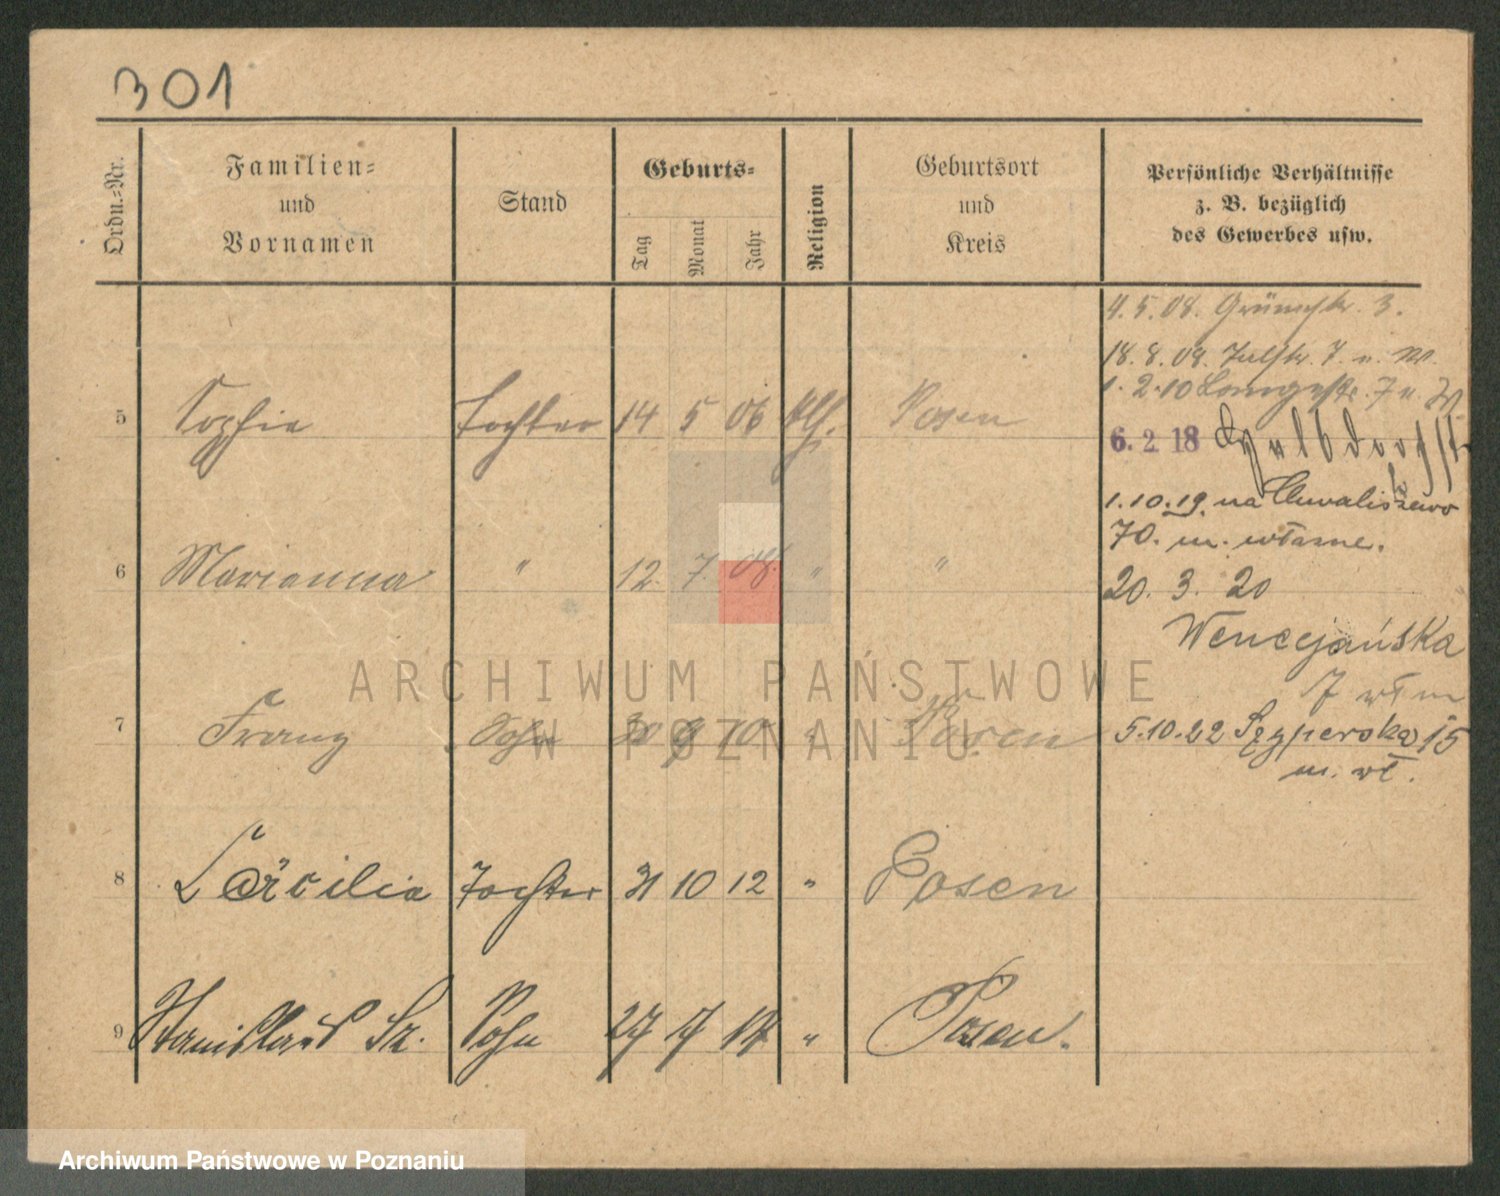 301
Ordn.-Nr.
Familien-
und
Vornamen
Stand
Geburts-
Tag
Monat
Jahr
Religion
Geburtsort
und
Kreis
Persönliche Verhältnisse
z. B. bezüglich
des Gewerbes usw.
4.5.08. Grünestr. 3.
18.8.09. 7. u. W.
1.2.10 7 u. W.
5 Sophie Tochter 14 5 06 kth. Posen
6. 2 18
1.10.19. na Chwaliszewo
70. m. własne.
6 Marianna " 12. 7. 08. " "
20. 3. 20
Wenecjańska
7 wł m
7 Franz Sohn 30 9 10 " Posen
5.10.22 Szyperska 15
m. wł.
8 Cäcilia Tochter 31 10 12 " Posen
9 Stanislaus Sz. Sohn 27 17 " Posen.
ARCHIWUM PAŃSTWOWE
W POZNANIU
Archiwum Państwowe w Poznaniu